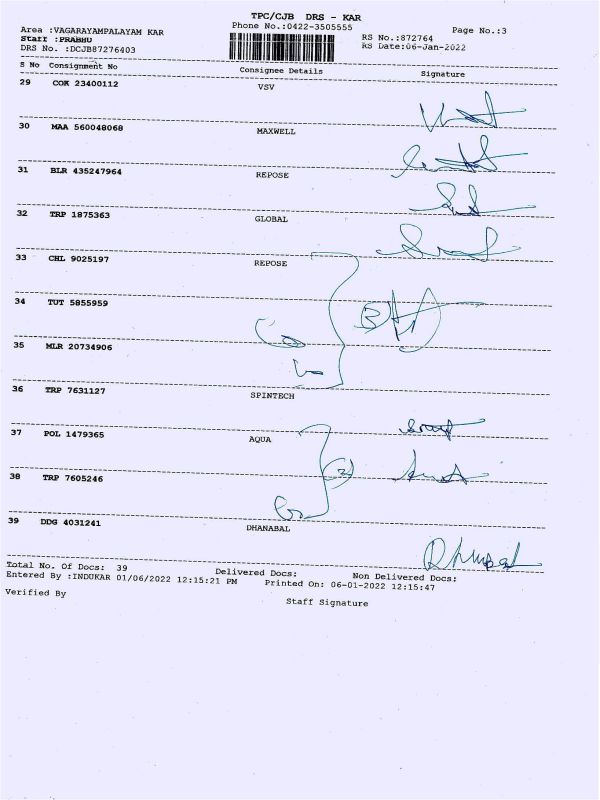 TPC/CJB DRS - KAR
Phone No.:0422-3505555
Page No.:3
Area :VAGARAYAMPALAYAM KAR
Staff :PRABHU
DRS No. :DCJB87276403
RS No.:872764
RS Date:06-Jan-2022
S No Consignment No Consignee Details Signature
29 COK 23400112 VSV
30 MAA 560048068 MAXWELL
31 BLR 435247964 REPOSE
32 TRP 1875363 GLOBAL
33 CHL 9025197 REPOSE
34 TUT 5855959
35 MLR 20734906
36 TRP 7631127 SPINTECH
37 POL 1479365 AQUA
38 TRP 7605246
39 DDG 4031241 DHANABAL
Total No. Of Docs: 39 Delivered Docs: Non Delivered Docs:
Entered By :INDUKAR 01/06/2022 12:15:21 PM Printed On: 06-01-2022 12:15:47
Verified By Staff Signature